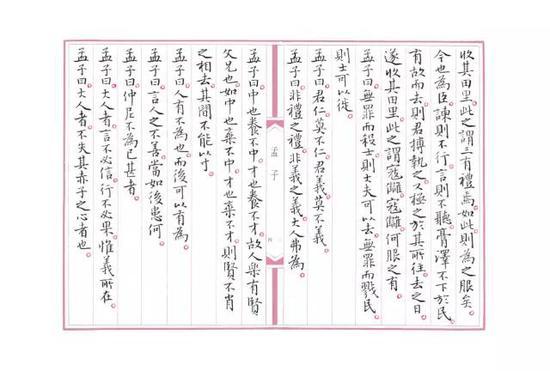 收其田里此之謂三有禮焉如此則為之服矣
今也為臣諫則不行言則不聽膏澤不下於民
有故而去則君搏執之又極之於其所往去之日
遂收其田里此之謂寇讎寇讎何服之有
孟子曰無罪而殺士則大夫可以去無罪而戮民
則士可以徙
孟子曰君仁莫不仁君義莫不義
孟子曰非禮之禮非義之義大人弗為
孟子
孟子曰中也養不中才也養不才故人樂有賢
父兄也如中也棄不中才也棄不才則賢不肖
之相去其間不能以寸
孟子曰人有不為也而後可以有為
孟子曰言人之不善當如後患何
孟子曰仲尼不為已甚者
孟子曰大人者言不必信行不必果惟義所在
孟子曰大人者不失其赤子之心者也